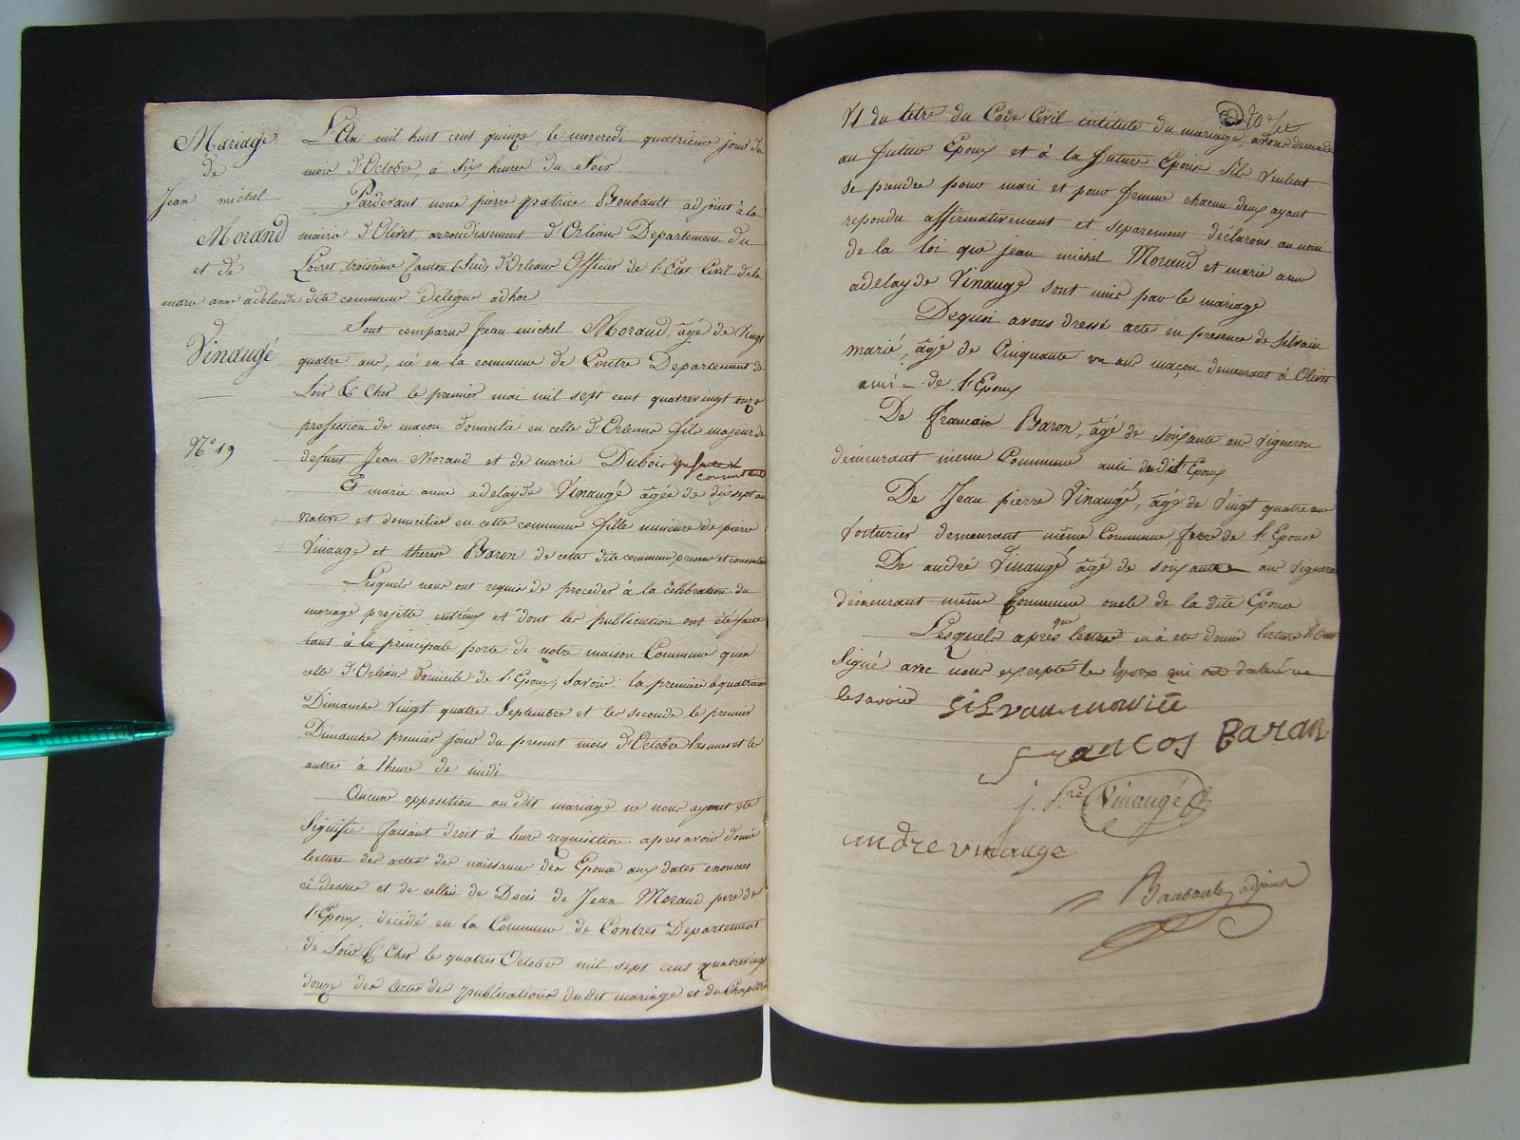 Mariage
de
Jean michel
Morand
et de
marie anne adelaide
Vinaugé
N.º 19
L'An mil huit cent quinze, le mercredi quatrieme jour du
mois d'Octobre, à six heures du Soir
Pardevant nous pierre patrice Boubault adjoint à la
mairie d'Olivet arrondissement d'Orleans Departement du
Loiret, troisieme Canton (Sud) d'Orleans Officier de l'Etat Civil de la
dite commune délégué adhoc
Sont comparus Jean michel Morand, âgé de Vingt
quatre ans, né en la commune de Contre Departement de
Loir & Cher le premier mai mil sept cent quatrevingt onze
profession de macon domicilié en celle d'Orleans fils majeur de
defunt Jean Morand et de marie Dubois
Et marie anne adelayde Vinaugé âgée de dix sept ans
native et domiciliée en cette commune fille mineure de pierre
Vinaugé et therese Baron de cette dite commune presens et consentans
Lesquels nous ont requis de proceder à la célébration du
mariage projetté entr'eux et dont les publications ont été faites
tant à la principale porte de notre maison Commune que
celle d'Orleans Domicile de l'Epoux; Savoir la premiere le
Dimanche Vingt quatre Septembre et la seconde le premier
Dimanche premier jour du present mois d'Octobre et le
autre à l'heure de midi
Aucune opposition au dit mariage ne nous ayant été
Signifiée faisant droit à leur requisition, apres avoir donné
lecture des actes de naissance des Epoux aux dates enoncées
ci dessus et de celui de Deces de Jean Morand pere de
l'Epoux, décédé en la Commune de Contres Departement
de Loir & Cher le quatre Octobre mil sept cent quatrevingt
douze des actes de publications du dit mariage et du Chapitre
VI du titre du Code Civil intitulé du mariage, avons demandé
au futur Epoux et à la future Epouse s'ils veulent
se prendre pour mari et pour femme chacun deux ayant
repondu affirmativement et separement déclarons au nom
de la loi que jean michel Morand et marie anne
adelayde Vinaugé sont unis par le mariage
Dequoi avons dressé acte en presence de Silvain
marié, âgé de Cinquante un ans maçon demeurant à Olivet
ami de l'Epoux
De francois Baron, âgé de soixante ans vigneron
demeurant meme Commune ami du dit Epoux
De Jean pierre Vinaugé, âgé de vingt quatre ans
voiturier demeurant même Commune frere de l'Epouse
De andré Vinaugé âgé de soixante ans vigneron
demeurant même Commune oncle de la dite Epouse
Lesquels après que lecture en a été donné lecture
Signé avec nous excepté les époux qui ont declaré ne
le savoir
silvain marié
francois Baron
j. P.re Vinaugé
andre vinauge
Boubault adjoint